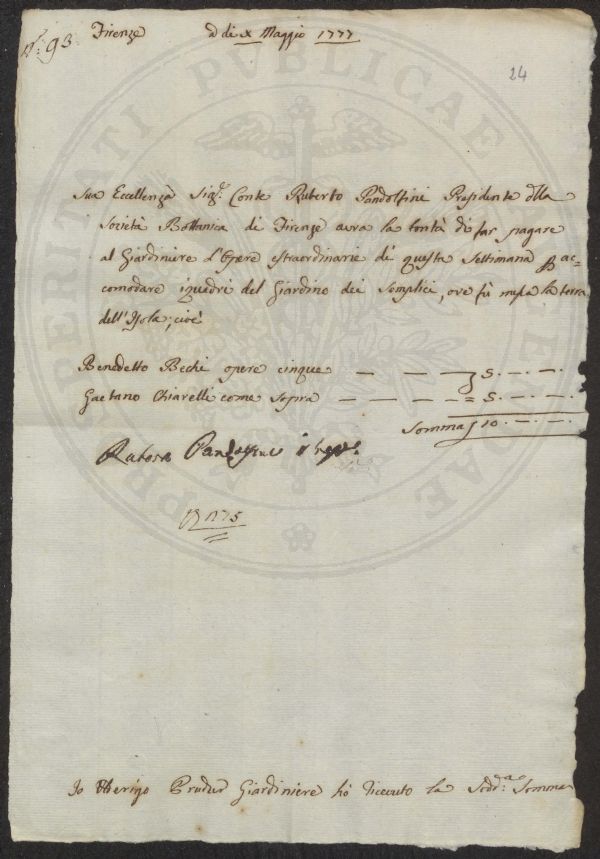 N.° 93. Firenze a dì X Maggio 1777
24
Sua Eccellenza Sig.r Conte Ruberto Pandolfini Presidente della
Società Bottanica di Firenze avrà la bontà di far pagare
al Giardiniere l'Opere estraordinarie di questa Settimana p ac=
comodare i quadri del Giardino dei Semplici, ove fù messa la terra
dell'Isola; cioè
Benedetto Bechi opere cinque — — — 5. — . —
Gaetano Chiarelli come sopra — — — — = 5. — . —
Somma 10. — . —
Pandolfini
1775
Io Giardiniere hò ricevuto la Sodd.a Somma
PROSPERITATI PUBLICAE AUGENDAE